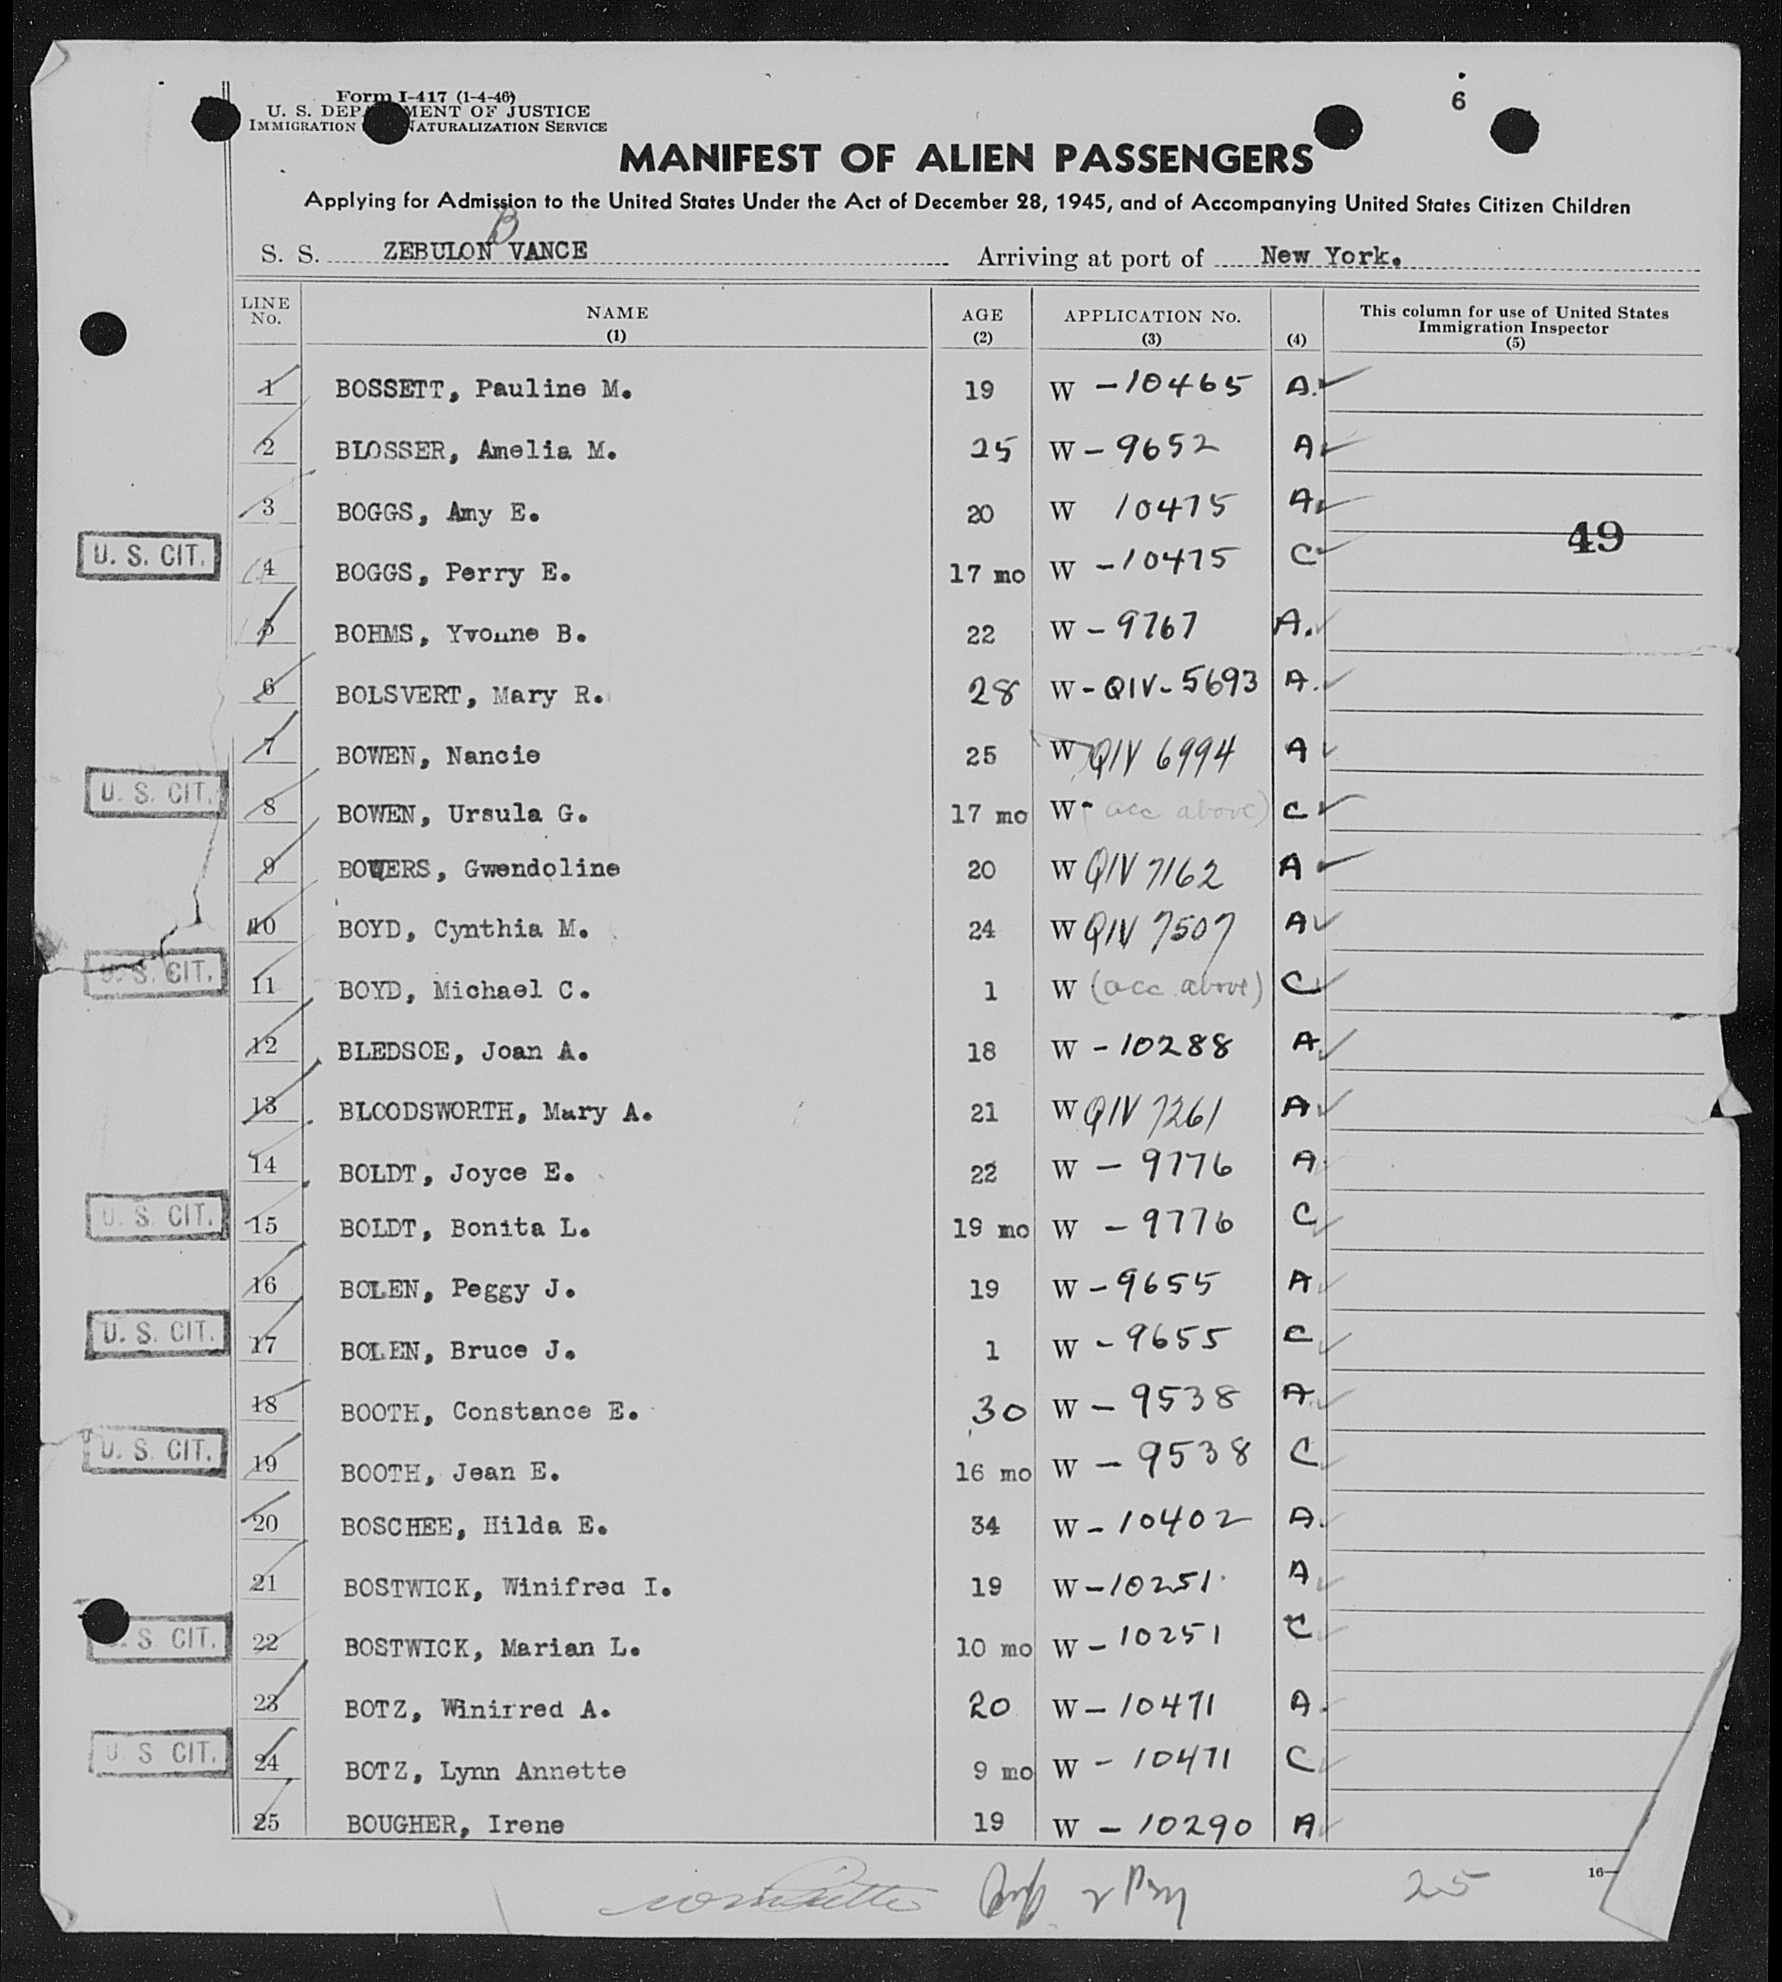 Form I-417 (1-4-46)
6
U. S. DEPARTMENT OF JUSTICE
IMMIGRATION NATURALIZATION SERVICE
MANIFEST OF ALIEN PASSENGERS
Applying for Admission to the United States Under the Act of December 28, 1945, and of Accompanying United States Citizen Children
S. S. ZEBULON B VANCE Arriving at port of New York.
LINE No. NAME (1) AGE (2) APPLICATION No. (3) (4) This column for use of United States Immigration Inspector (5)
1 BOSSETT, Pauline M. 19 W -10465 A.
2 BLOSSER, Amelia M. 25 W - 9652 A
3 BOGGS, Amy E. 20 W 10475 A
49
U. S. CIT. 4 BOGGS, Perry E. 17 mo W -10475 C
5 BOHMS, Yvonne B. 22 W - 9767 A.
6 BOLSVERT, Mary R. 28 W - QIV - 5693 A.
7 BOWEN, Nancie 25 W QIV 6994 A
U. S. CIT. 8 BOWEN, Ursula G. 17 mo W- (acc above) C
9 BOWERS, Gwendoline 20 W QIV 7162 A
10 BOYD, Cynthia M. 24 W QIV 7507 A
U. S. CIT. 11 BOYD, Michael C. 1 W (acc above) C
12 BLEDSOE, Joan A. 18 W - 10288 A
13 BLOODSWORTH, Mary A. 21 W QIV 7261 A
14 BOLDT, Joyce E. 22 W - 9776 A
U. S. CIT. 15 BOLDT, Bonita L. 19 mo W - 9776 C
16 BOLEN, Peggy J. 19 W - 9655 A
U. S. CIT. 17 BOLEN, Bruce J. 1 W - 9655 C
18 BOOTH, Constance E. 30 W - 9538 A
U. S. CIT. 19 BOOTH, Jean E. 16 mo W - 9538 C
20 BOSCHEE, Hilda E. 34 W - 10402 A.
21 BOSTWICK, Winifred I. 19 W -10251 A
U. S. CIT. 22 BOSTWICK, Marian L. 10 mo W - 10251 C
23 BOTZ, Winifred A. 20 W - 10471 A.
U. S. CIT. 24 BOTZ, Lynn Annette 9 mo W - 10471 C
25 BOUGHER, Irene 19 W - 10290 A
25
16—